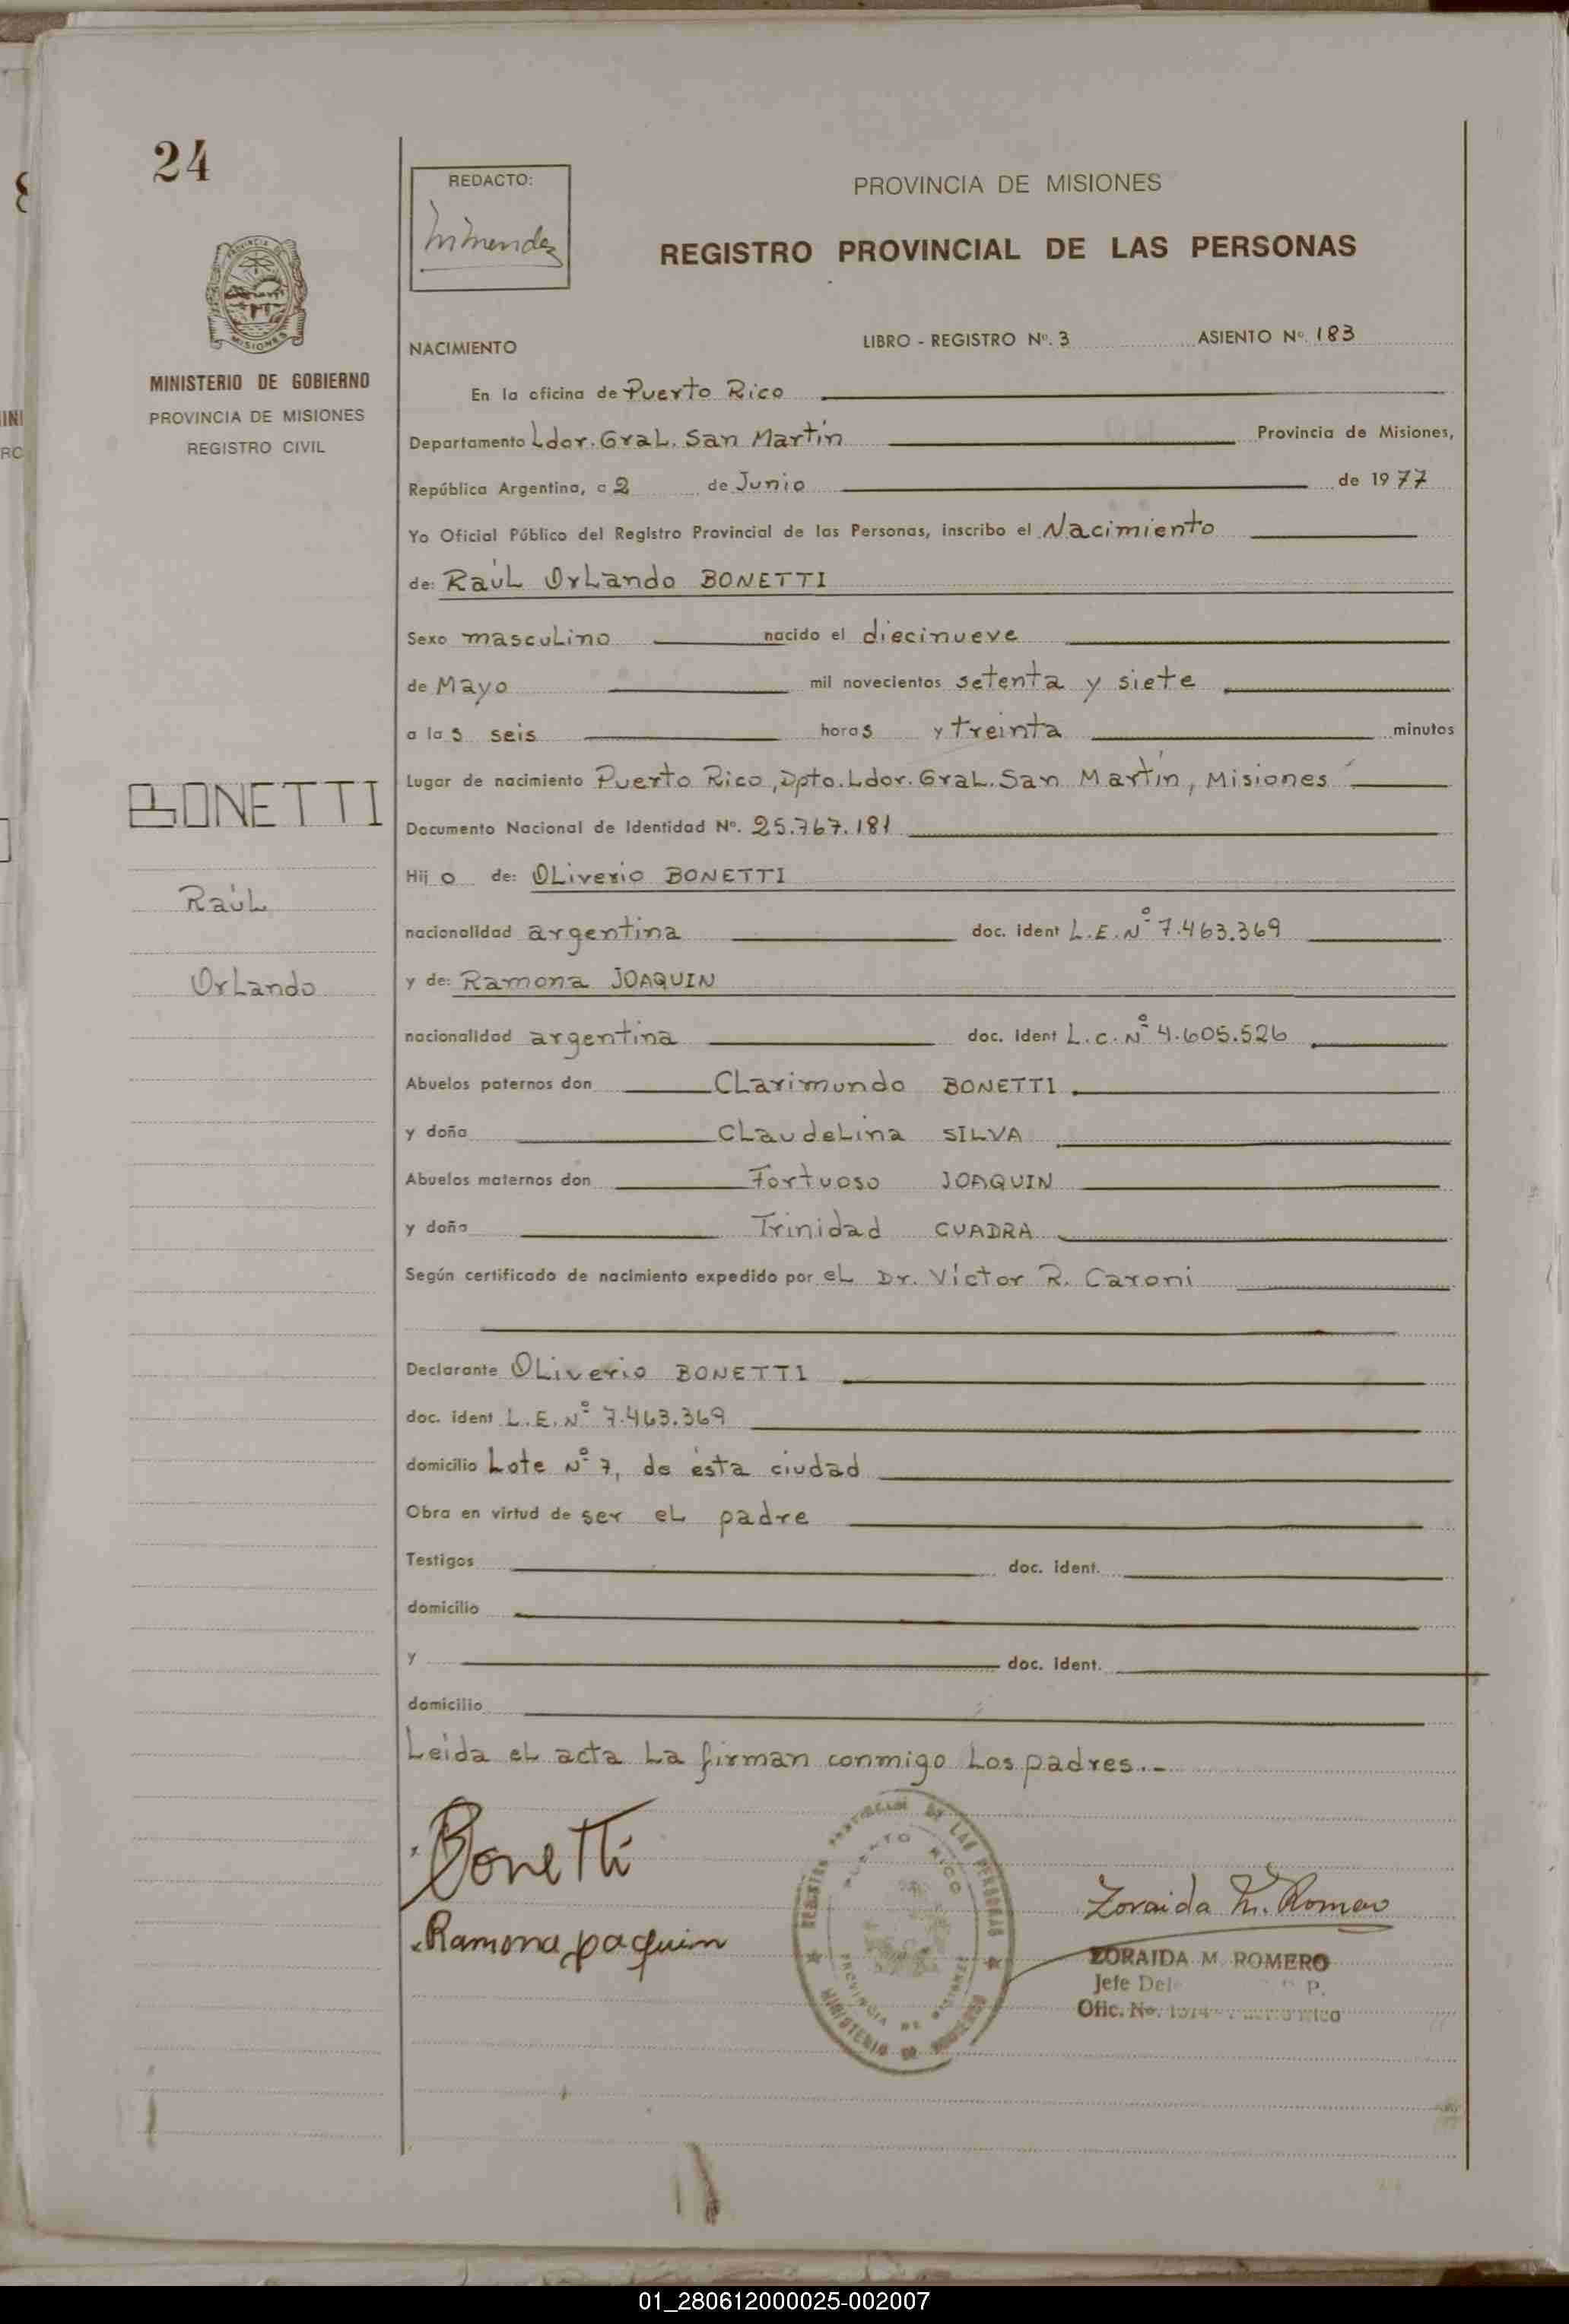 24
PROVINCIA DE MISIONES
MINISTERIO DE GOBIERNO
PROVINCIA DE MISIONES
REGISTRO CIVIL
BONETTI
Raúl
Orlando
REDACTO:
PROVINCIA DE MISIONES
REGISTRO PROVINCIAL DE LAS PERSONAS
NACIMIENTO LIBRO - REGISTRO Nº. 3 ASIENTO Nº. 183
En la oficina de Puerto Rico
Departamento Ldor. Gral. San Martín Provincia de Misiones,
República Argentina, a 2 de Junio de 1977
Yo Oficial Público del Registro Provincial de las Personas, inscribo el Nacimiento
de: Raúl Orlando BONETTI
Sexo masculino nacido el diecinueve
de Mayo mil novecientos setenta y siete
a las seis horas y treinta minutos
Lugar de nacimiento Puerto Rico, Dpto. Ldor. Gral. San Martín, Misiones
Documento Nacional de Identidad Nº. 25.767.181
Hijo de: Oliverio BONETTI
nacionalidad argentina doc. ident L.E. Nº 7.463.369
y de: Ramona JOAQUIN
nacionalidad argentina doc. ident L.C. Nº 4.605.526
Abuelos paternos don Clarimundo BONETTI
y doña Claudelina SILVA
Abuelos maternos don Fortuoso JOAQUIN
y doña Trinidad CUADRA
Según certificado de nacimiento expedido por el Dr. Víctor R. Caroni
Declarante Oliverio BONETTI
doc. ident L.E. Nº 7.463.369
domicilio Lote Nº 7, de ésta ciudad
Obra en virtud de ser el padre
Testigos doc. ident.
domicilio
y doc. ident.
domicilio
Leída el acta la firman conmigo los padres.-
Bonetti
Ramona Joaquin
REGISTRO PROVINCIAL DE LAS PERSONAS
PUERTO RICO
PROVINCIA DE MISIONES
MINISTERIO DE GOBIERNO
Zoraida M. Romero
ZORAIDA M. ROMERO
Jefe P.
Ofic. No.
01_280612000025-002007